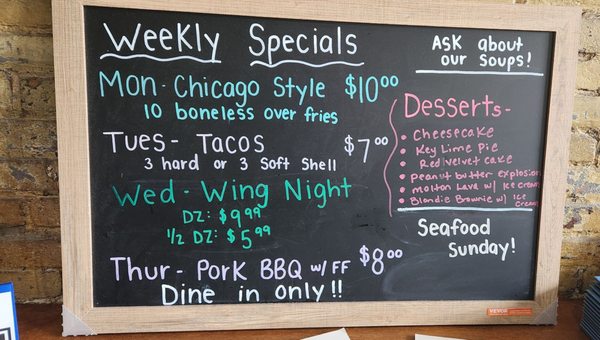 Weekly Specials
Mon - Chicago Style $10.00
10 boneless over fries
Tues - Tacos $7.00
3 hard or 3 Soft Shell
Wed - Wing Night
DZ: $9.99
1/2 DZ: $5.99
Thur - Pork BBQ w/ FF $8.00
Dine in only!!
Ask about
our soups!
Desserts -
• Cheesecake
• Key Lime Pie
• Red velvet cake
• Peanut butter explosion
• Molton Lava w/ Ice cream
• Blondie Brownie w/ Ice
cream
Seafood
Sunday!
VEVOR